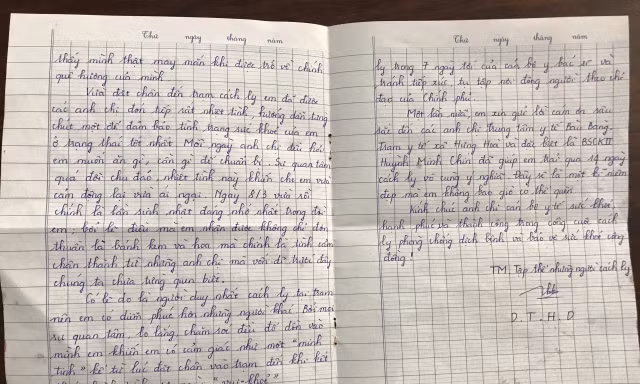 Thứ ngày tháng năm
thấy mình thật may mắn khi được trở về chính
quê hương của mình.
Vừa đặt chân đến trạm cách ly em đã được
các anh chị đón tiếp rất nhiệt tình, hướng dẫn từng
chút một để đảm bảo tình trạng sức khỏe của em
ở trạng thái tốt nhất. Mỗi ngày anh chị đều hỏi
em muốn ăn gì, cần gì để chuẩn bị. Sự quan tâm
quá đỗi chu đáo, nhiệt tình này khiến cho em vừa
cảm động lại vừa ái ngại. Ngày 8/3 vừa rồi
chính là lần sinh nhật đáng nhớ nhất trong đời
em, bởi lẽ điều mà em nhận được không chỉ đơn
thuần là bánh kem và hoa mà chính là tình cảm
chân thành từ những anh chị mà vốn dĩ trước đây
chúng ta chưa từng quen biết.
Có lẽ do là người duy nhất cách ly tại trạm
nên em có diễm phúc hơn những người khác. Bởi mọi
sự quan tâm, lo lắng, chăm sóc đều đổ dồn vào
mình em khiến em có cảm giác như một "minh
tinh" kể từ lúc đặt chân vào trạm đến khi kết
Thứ ngày tháng năm
ly trong 7 ngày tới của cán bộ y bác sĩ và
tránh tiếp xúc, tụ tập nơi đông người theo chỉ
đạo của Chính phủ.
Một lần nữa, em xin gửi lời cảm ơn sâu
sắc đến các anh chị trung tâm y tế Bàu Bàng,
Trạm y tế xã Hưng Hòa và đặc biệt là BSCKII
Huỳnh Minh Chín đã giúp em trải qua 14 ngày
cách ly vô cùng ý nghĩa. Đây sẽ là một kỉ niệm
đẹp mà em không bao giờ có thể quên.
Kính chúc anh chị cán bộ y tế sức khỏe,
hạnh phúc và thành công trong công cuộc cách
ly phòng chống dịch bệnh và bảo vệ sức khỏe cộng
đồng!
TM. Tập thể những người cách ly
D.T.H.D